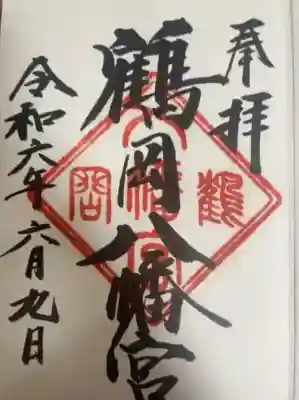 奉拝
鶴岡八幡宮
令和六年六月九日
鶴
八幡宮
岡